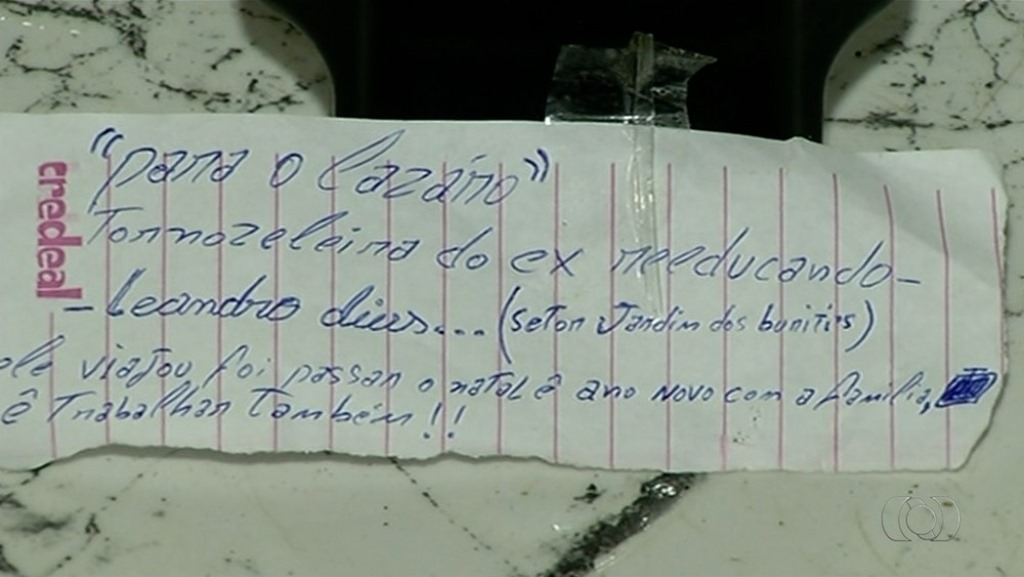 credeal
"para o Lazáro"
Tornozeleira do ex reeducando-
- Leandro dias... (setor Jardim dos buritis)
ele viajou foi passar o natal ê ano novo com a familia,
ê Trabalhar Também!!